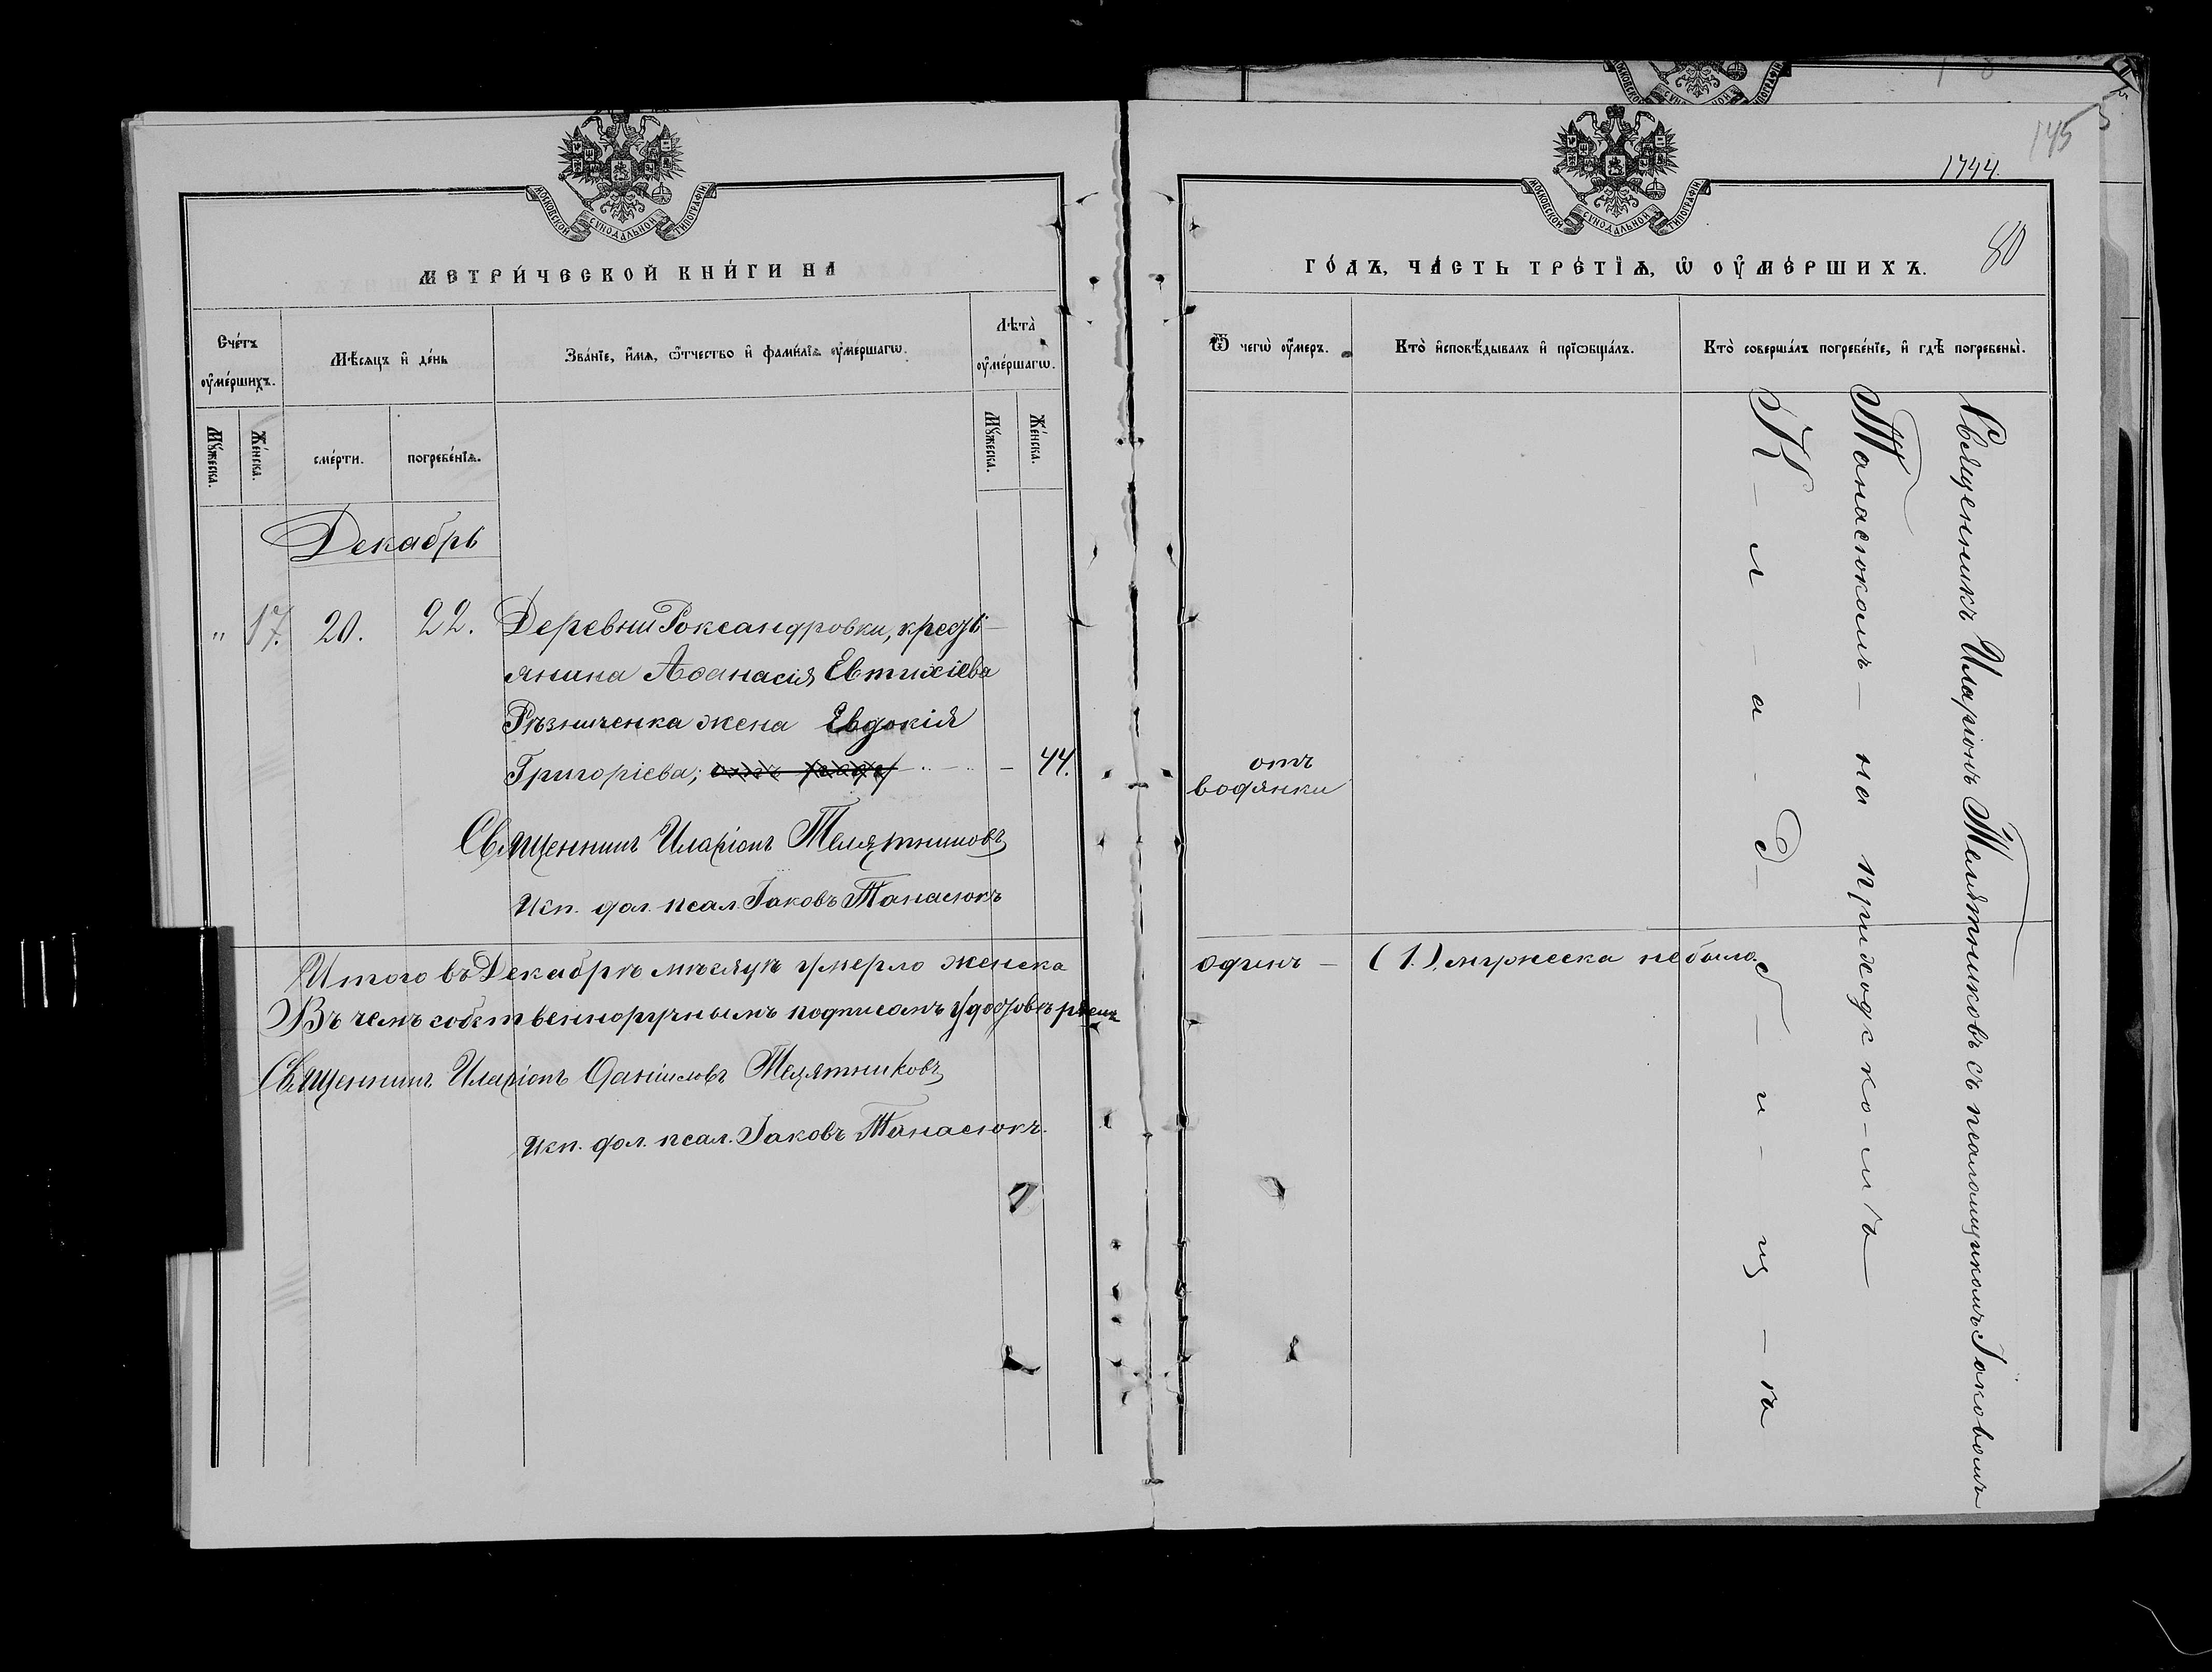 МОСКОВСКОЙ СѴНОДАЛЬНОЙ ТИПОГРАФІИ
МЕТРИ́ЧЕСКОЙ КНИ́ГИ НА
Сче́тъ оу҆ме́ршихъ.
Мѣ́сяцъ и҆ де́нь
Зва́нїе, и҆́мѧ, ѻ҆́тчество и҆ фами́лїѧ оу҆ме́ршагѡ.
Лѣта̀ оу҆ме́ршагѡ.
Мꙋ́жеска.
Же́нска.
сме́рти.
погребе́нїѧ.
Мꙋ́жеска.
Же́нска.
Декабрь
" 17. 20. 22. Деревни Роксандровки, кресть-
янина Аѳанасія Евтихіева
Рѣзниченка жена Евдокія
Григоріева; — 44.
Священникъ Иларіонъ Телятниковъ
Исп. дол. псал. Іаковъ Танасюкъ
Итого въ Декабрѣ мѣсяцѣ умерло женска
Въ чемъ собственноручнымъ подписомъ удостовѣряемъ
Священникъ Иларіонъ Даніиловъ Телятниковъ
Исп. дол. псал. Іаковъ Танасюкъ.
145
1744.
МОСКОВСКОЙ СѴНОДАЛЬНОЙ ТИПОГРАФІИ
80
ГО́ДЪ, ЧА́СТЬ ТРЕ́ТЇѦ, Ѡ҆ ОУ҆МЕ́РШИХЪ.
Ѿ чегѡ̀ оу҆́меръ.
Кто̀ и҆сповѣ́дывалъ и҆ прїѡбща́лъ.
Кто̀ соверша́лъ погребе́нїе, и҆ гдѣ̀ погребены̀.
отъ
водянки
одинъ — (1.), мужеска не было.
Священникъ Иларіонъ Телятниковъ съ псаломщикомъ Іаковомъ
Танасюкомъ — на приходско-мъ
К-л-а-д-б-и-щ-ѣ